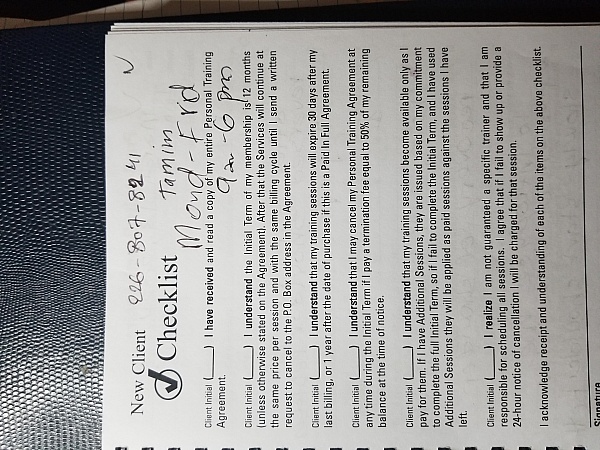 New Client 226-807-8241
Checklist Tamim
Mond-Frid
9am-6pm
Client Initial (____) I have received and read a copy of my entire Personal Training
Agreement.
Client Initial (____) I understand the Initial Term of my membership is 12 months
(unless otherwise stated on the Agreement). After that the Services will continue at
the same price per session and with the same billing cycle until I send a written
request to cancel to the P.O. Box address in the Agreement.
Client Initial (____) I understand that my training sessions will expire 30 days after my
last billing, or 1 year after the date of purchase if this is a Paid In Full Agreement.
Client Initial (____) I understand that I may cancel my Personal Training Agreement at
any time during the Initial Term if I pay a termination fee equal to 50% of my remaining
balance at the time of notice.
Client Initial (____) I understand that my training sessions become available only as I
pay for them. If I have Additional Sessions, they are issued based on my commitment
to complete the full Initial Term, so if I fail to complete the Initial Term, and I have used
Additional Sessions they will be applied as paid sessions against the sessions I have
left.
Client Initial (____) I realize I am not guaranteed a specific trainer and that I am
responsible for scheduling all sessions. I agree that if I fail to show up or provide a
24-hour notice of cancellation I will be charged for that session.
I acknowledge receipt and understanding of each of the items on the above checklist.
Signature